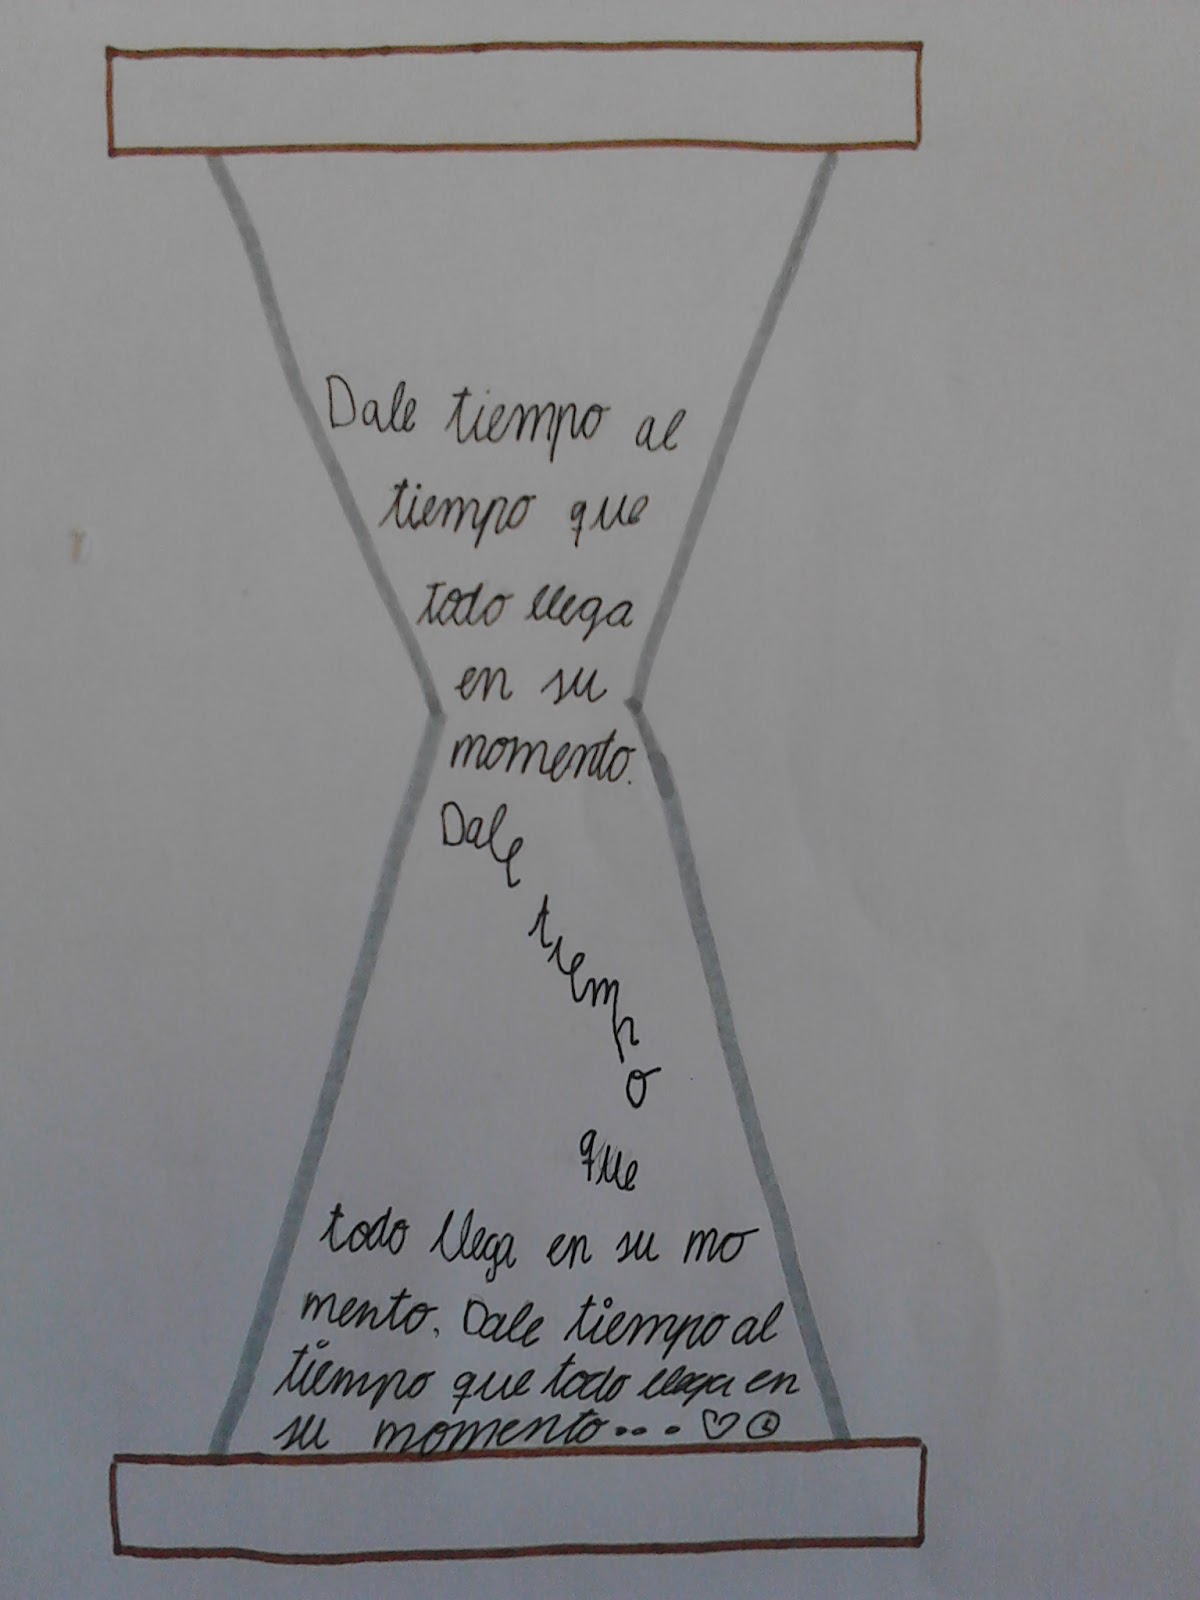 Dale tiempo al
tiempo que
todo llega
en su
momento.
Dale
tiempo
que
todo llega en su mo
mento. Dale tiempo al
tiempo que todo llega en
su momento...